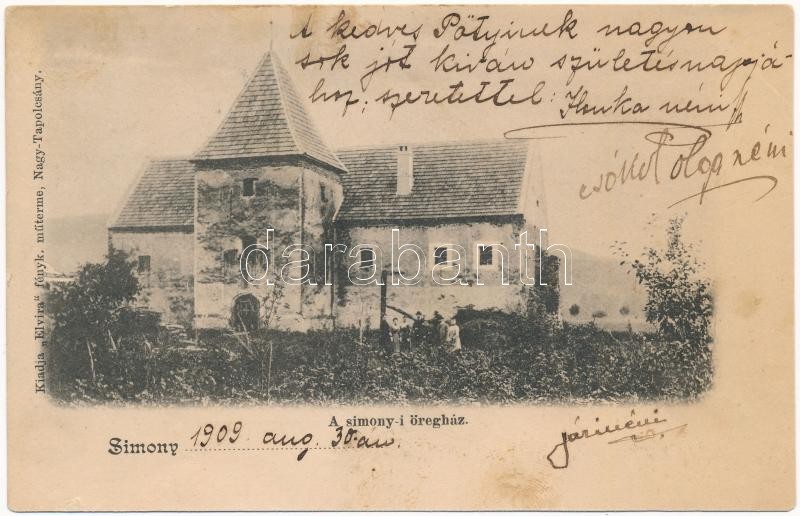 A kedves Pötyinek nagyon
sok jót kiván születésnapjá-
hoz, szeretettel: Ilonka néni
csókol Olga néni
Kiadja „Elvira“ fényk. műterme, Nagy-Tapolcsány.
darabanth
A simony-i öregház.
Simony 1909 aug. 30-án.